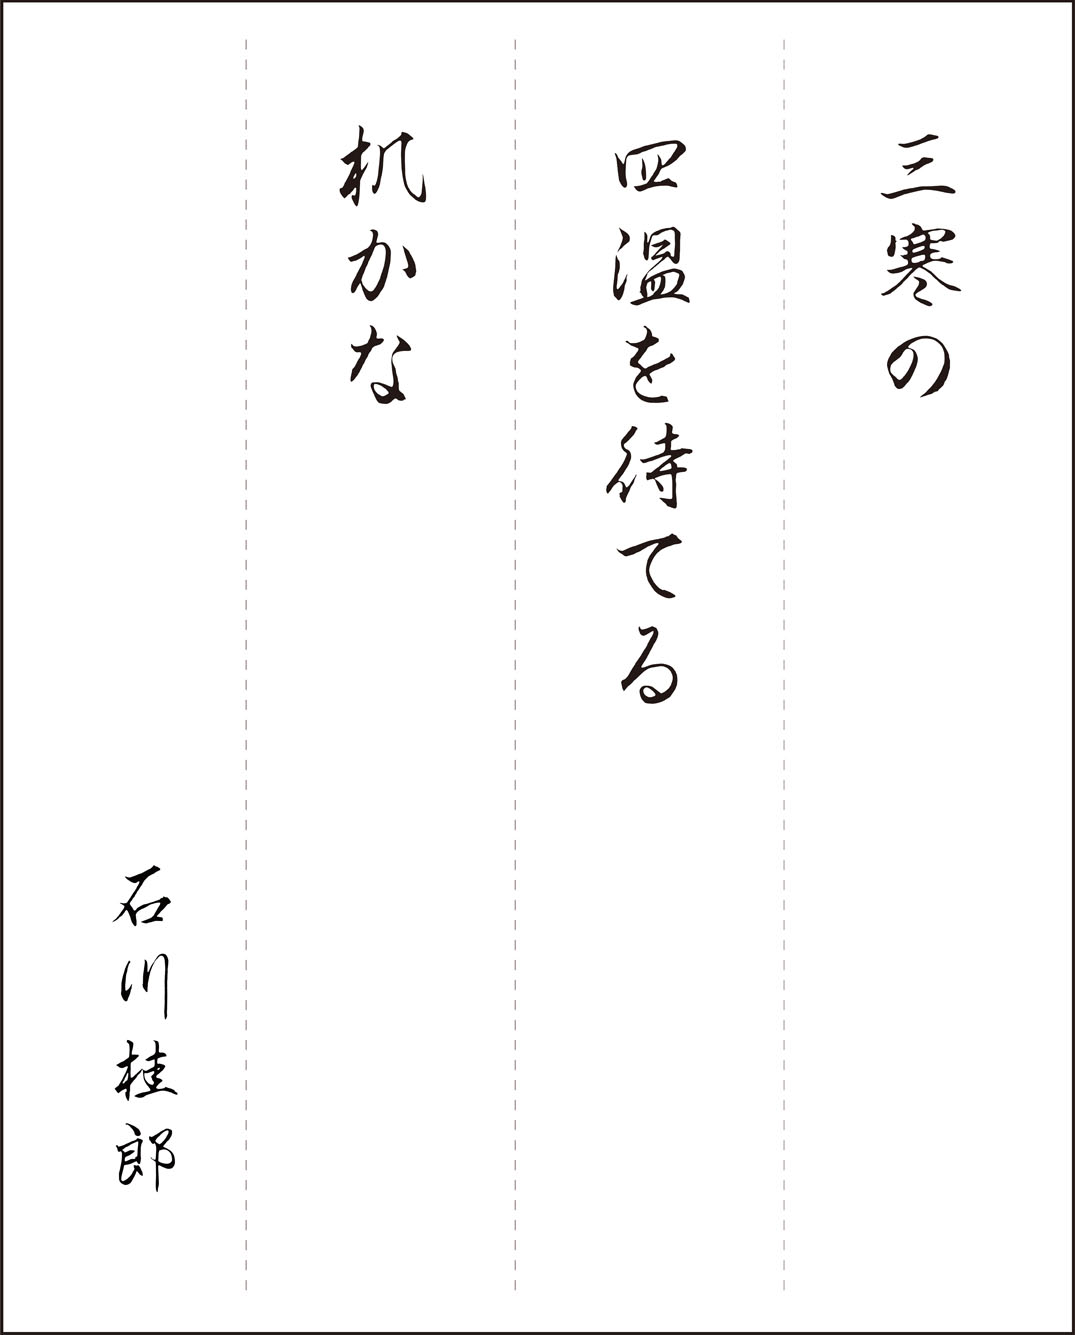 三寒の
四温を待てる
机かな
石川桂郎